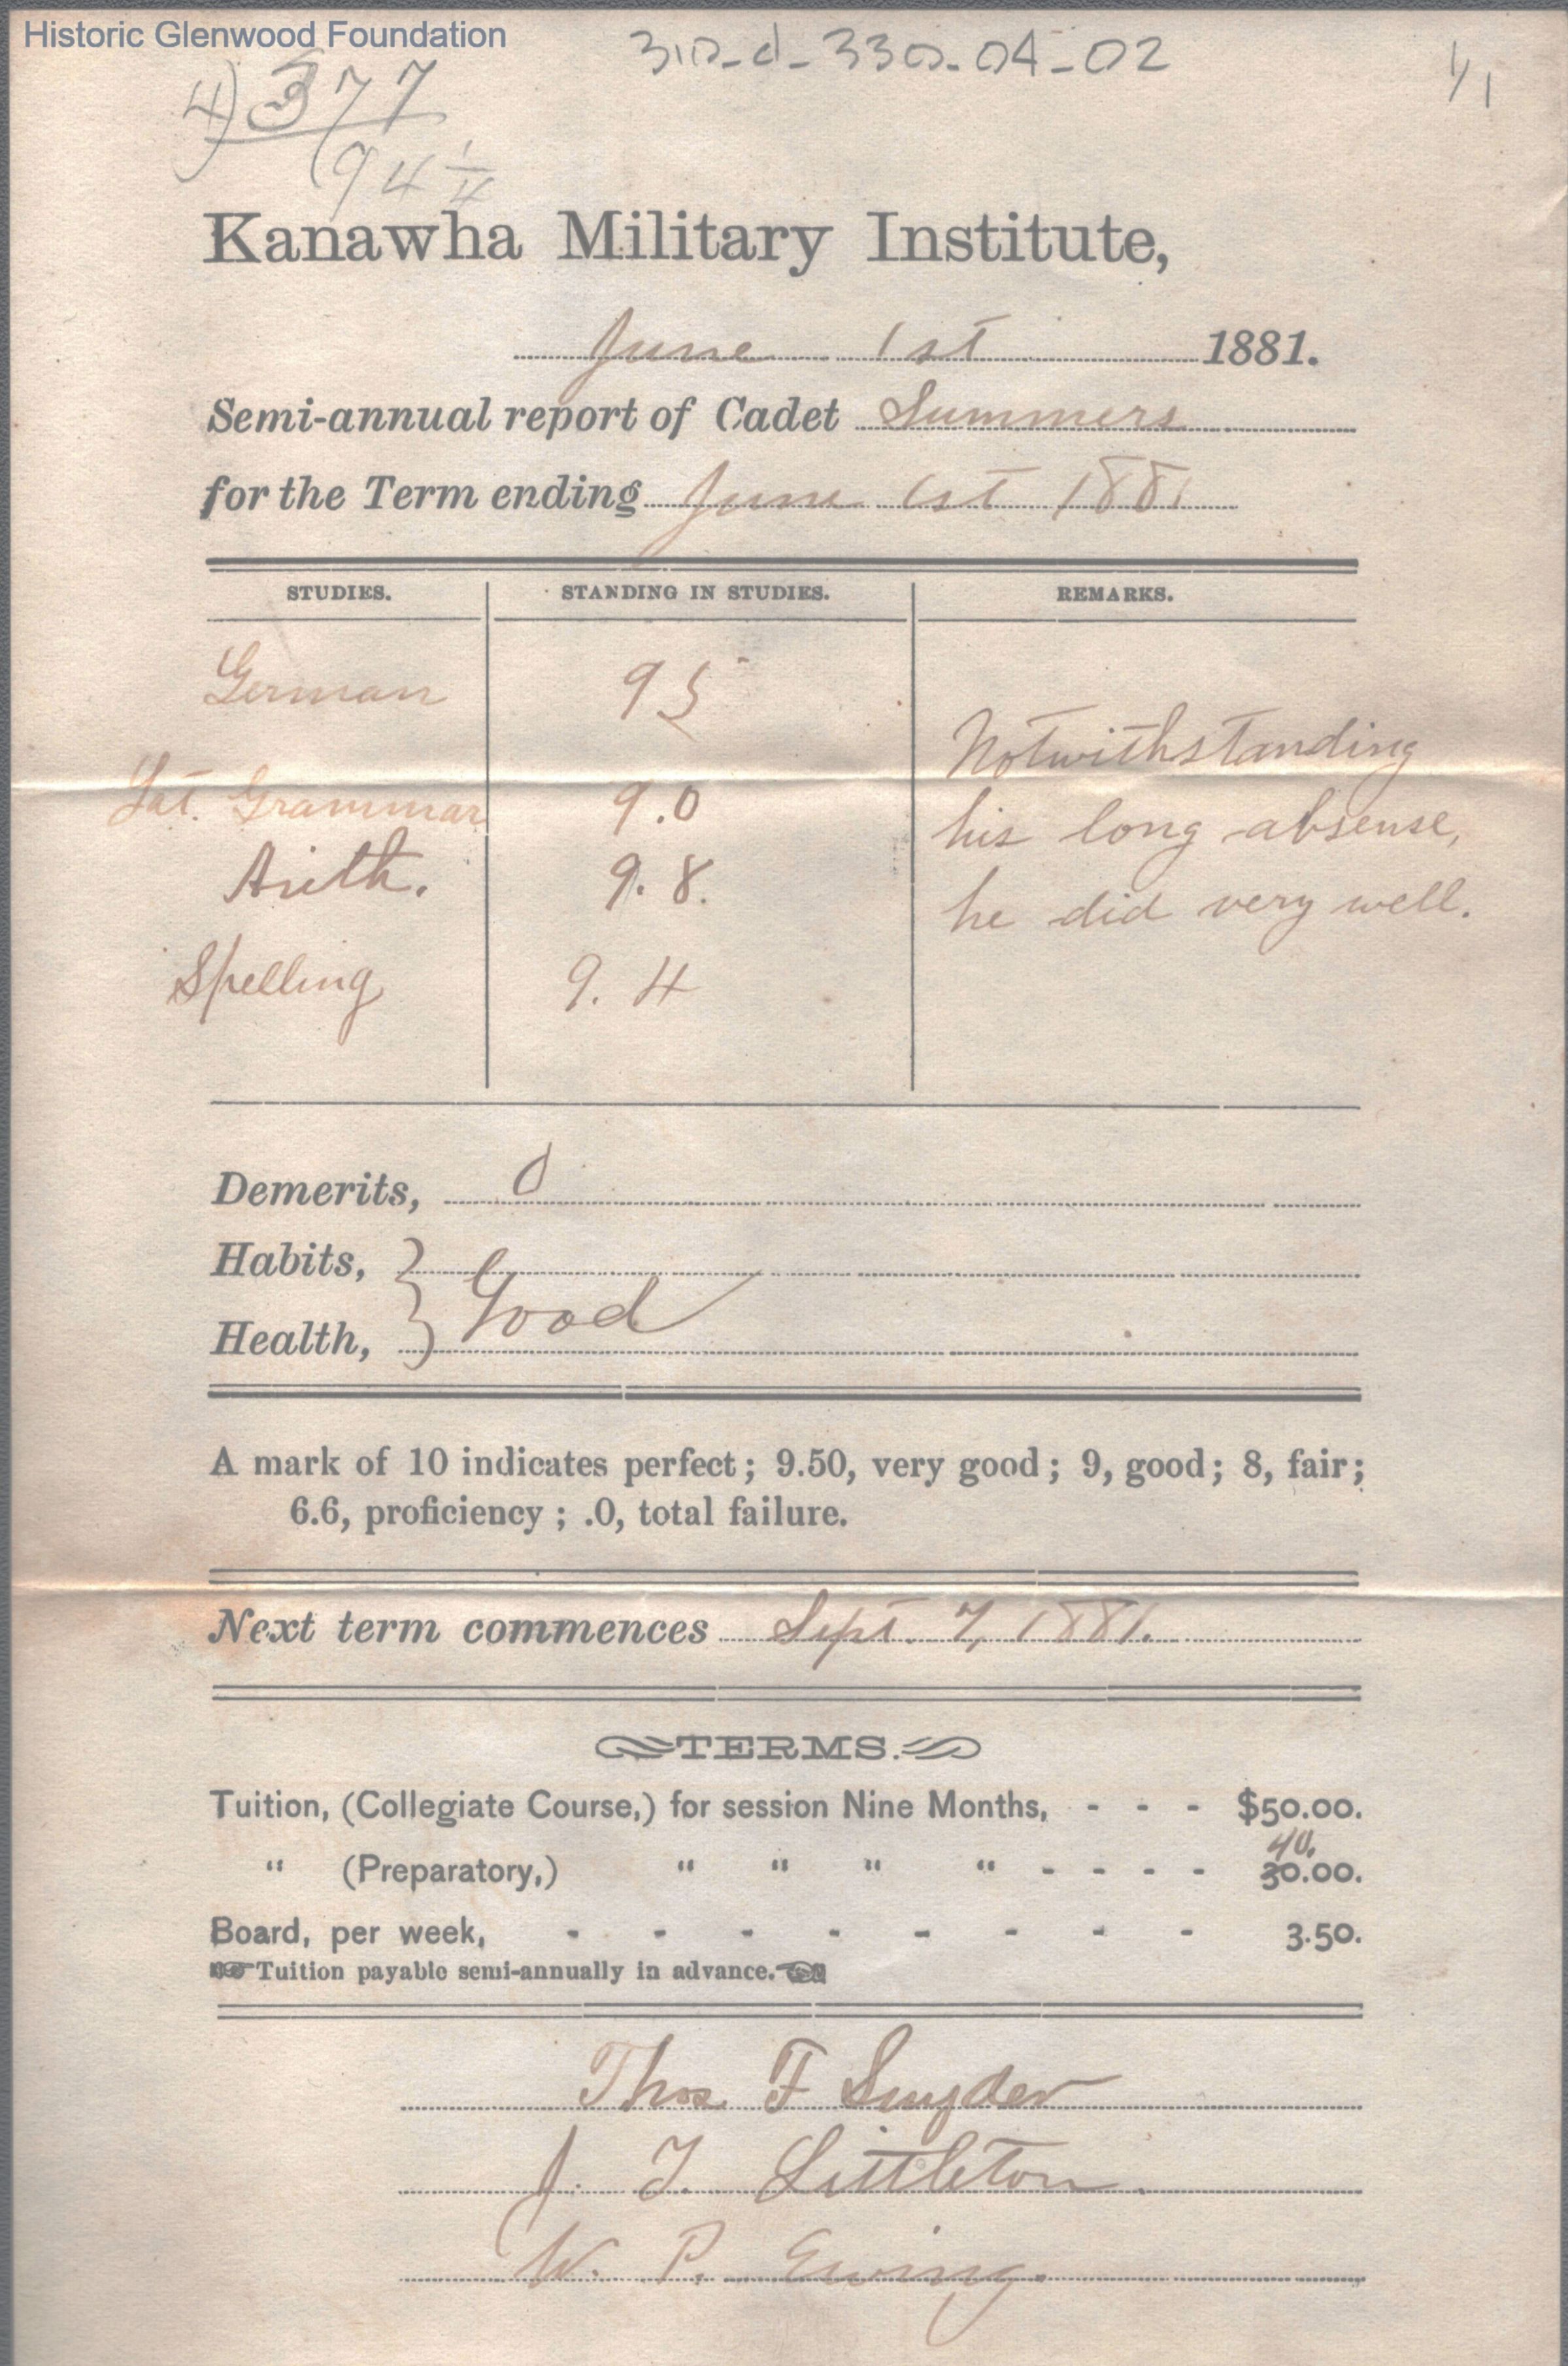 Historic Glenwood Foundation
310-d-330-04-02
1/1
4)377
94 1/4
Kanawha Military Institute,
June 1st 1881.
Semi-annual report of Cadet Summers
for the Term ending June 1st 1881
STUDIES. STANDING IN STUDIES. REMARKS.
German 95
Notwithstanding
Lat. Grammar 9.0
his long absense,
Arith. 9.8.
he did very well.
Spelling 9.4
Demerits, 0
Habits, } Good
Health,
A mark of 10 indicates perfect; 9.50, very good; 9, good; 8, fair;
6.6, proficiency; .0, total failure.
Next term commences Sept. 7, 1881.
TERMS.
Tuition, (Collegiate Course,) for session Nine Months, - - - $50.00.
40.
" (Preparatory,) " " " " - - - - 30.00.
Board, per week, - - - - - - - - 3.50.
☞Tuition payable semi-annually in advance.☜
Thos. F Snyder
J. T. Littleton.
W. P. Ewing.